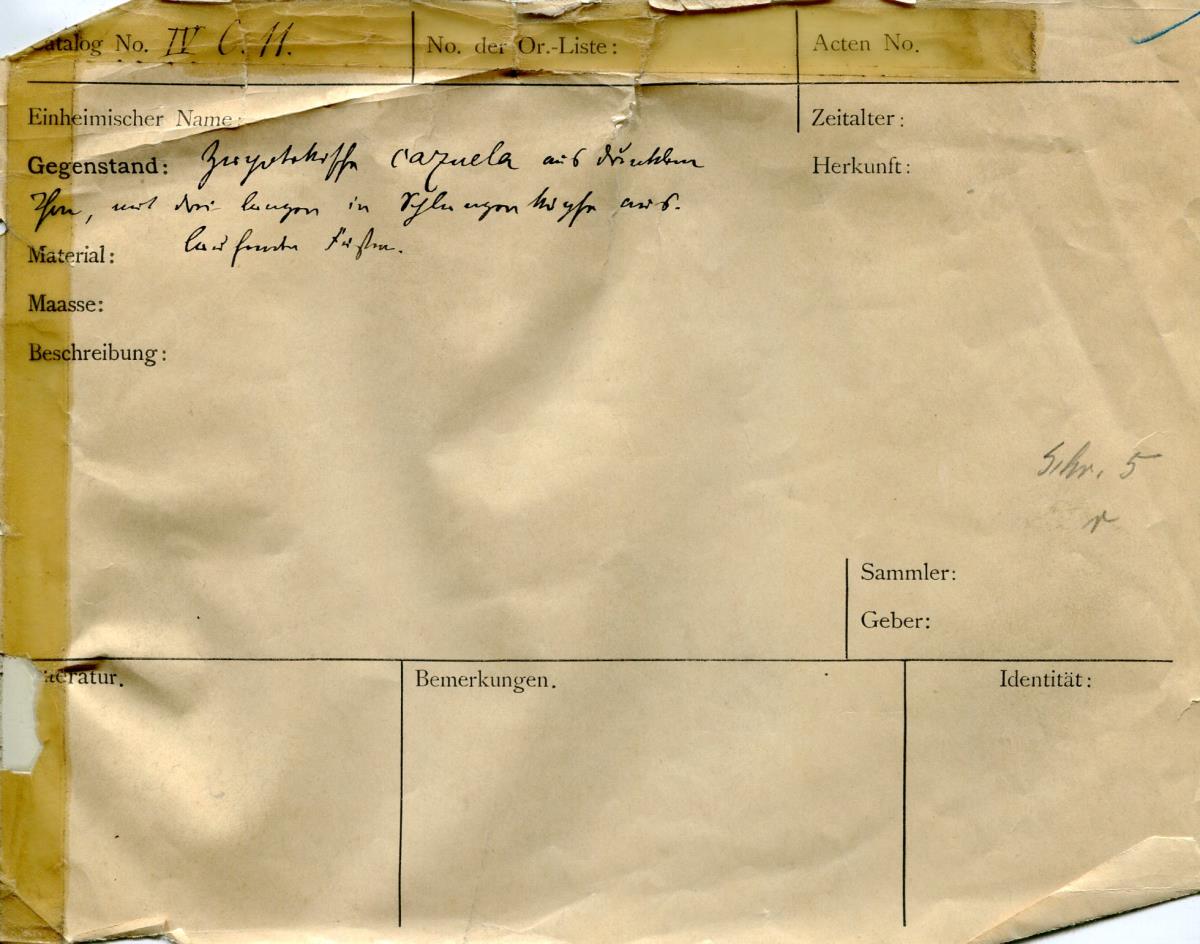 Catalog No. IV C. 11.
No. der Or.-Liste:
Acten No.
Einheimischer Name:
Zeitalter:
Gegenstand: Zapotekische cazuela aus dunklem
Herkunft:
Thon, mit drei langen in Schlangenköpfe aus-
laufenden Füssen.
Material:
Maasse:
Beschreibung:
Schr. 5
Sammler:
Geber:
Literatur.
Bemerkungen.
Identität: